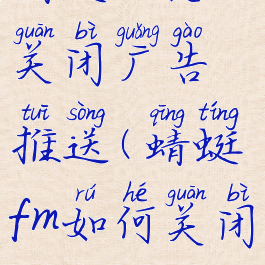 guān bì guǎng gào
关闭广告
tuī sòng qīng tíng
推送(蜻蜓
rú hé guān bì
fm如何关闭